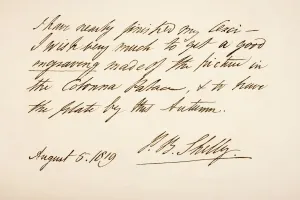 I have nearly finished my Cenci —
I wish very much to get a good
engraving made of the picture in
the Colonna Palace, & to have
the plate by this Autumn.
P. B. Shelley.
August 5. 1819